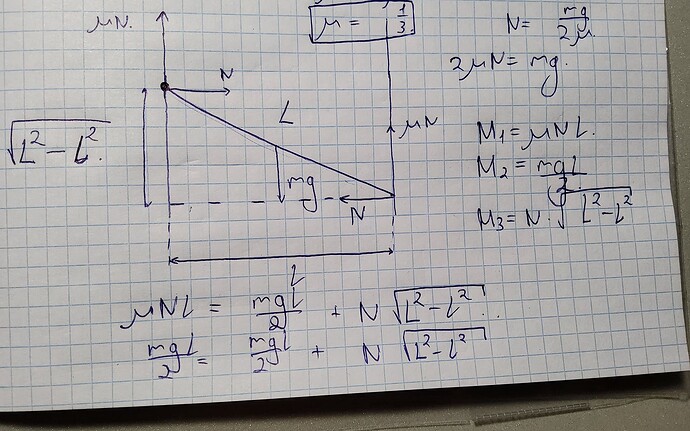 μN.
μ = 1/3.
N = mg/2μ
2μN = mg.
N
L
√(L² − l²).
μN
mg
N
M₁ = μNl.
M₂ = mgl/2
M₃ = N · √(L² − l²)
l
μNl = mgl/2 + N √(L² − l²).
mgl/2 = mgl/2 + N √(L² − l²)